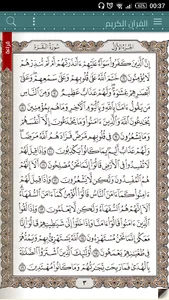 00:37
القرآن الكريم
الجزء الأول
سورة البقرة
قراءة
إن الذين كفروا سواء عليهم ءأنذرتهم أم لم تنذرهم
لا يؤمنون ٦ ختم الله على قلوبهم وعلى سمعهم وعلى
أبصارهم غشاوة ولهم عذاب عظيم ٧ ومن الناس
من يقول ءامنا بالله وباليوم الآخر وما هم بمؤمنين ٨
يخادعون الله والذين ءامنوا وما يخدعون إلا أنفسهم
وما يشعرون ٩ في قلوبهم مرض فزادهم الله مرضا
ولهم عذاب أليم بما كانوا يكذبون ١٠ وإذا قيل لهم
لا تفسدوا في الأرض قالوا إنما نحن مصلحون ١١
ألا إنهم هم المفسدون ولكن لا يشعرون ١٢ وإذا قيل لهم
ءامنوا كما ءامن الناس قالوا أنؤمن كما ءامن السفهاء
ألا إنهم هم السفهاء ولكن لا يعلمون ١٣ وإذا لقوا الذين
ءامنوا قالوا ءامنا وإذا خلوا إلى شياطينهم قالوا إنا
معكم إنما نحن مستهزءون ١٤ الله يستهزئ بهم ويمدهم
في طغيانهم يعمهون ١٥ أولئك الذين اشتروا الضلالة
بالهدى فما ربحت تجارتهم وما كانوا مهتدين ١٦
٣